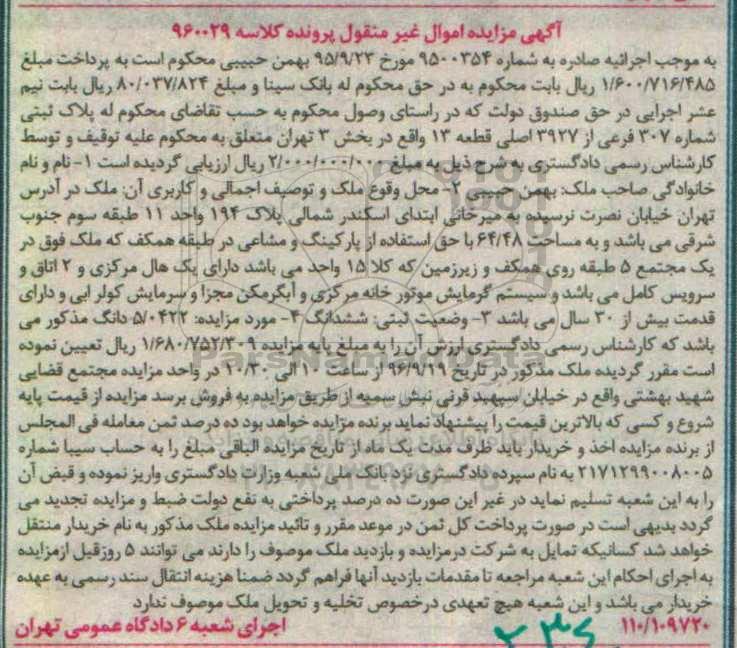 آگهی مزایده اموال غیر منقول پرونده کلاسه ۹۶۰۰۲۹
به موجب اجرائیه صادره به شماره ۹۵۰۰۳۵۴ مورخ ۹۵/۹/۲۳ بهمن حبیبی محکوم است به پرداخت مبلغ
۱/۶۰۰/۷۱۶/۴۸۵ ریال بابت محکوم به در حق محکوم له بانک سینا و مبلغ ۸۰/۰۳۷/۸۲۴ ریال بابت نیم
عشر اجرایی در حق صندوق دولت که در راستای وصول محکوم به حسب تقاضای محکوم له پلاک ثبتی
شماره ۳۰۷ فرعی از ۳۹۲۷ اصلی قطعه ۱۳ واقع در بخش ۳ تهران متعلق به محکوم علیه توقیف و توسط
کارشناس رسمی دادگستری به شرح ذیل به مبلغ ۲/۰۰۰/۰۰۰/۰۰۰ ریال ارزیابی گردیده است ۱- نام و نام
خانوادگی صاحب ملک: بهمن حبیبی ۲- محل وقوع ملک و توصیف اجمالی و کاربری آن: ملک در آدرس
تهران خیابان نصرت نرسیده به میرخانی ابتدای اسکندر شمالی پلاک ۱۹۴ واحد ۱۱ طبقه سوم جنوب
شرقی می باشد و به مساحت ۶۴/۴۸ با حق استفاده از پارکینگ و مشاعی در طبقه همکف که ملک فوق در
یک مجتمع ۵ طبقه روی همکف و زیرزمین که کلا ۱۵ واحد می باشد دارای یک هال مرکزی و ۲ اتاق و
سرویس کامل می باشد و سیستم گرمایش موتور خانه مرکزی و آبگرمکن مجزا و سرمایش کولر ابی و دارای
قدمت بیش از ۳۰ سال می باشد ۳- وضعیت ثبتی: ششدانگ ۴- مورد مزایده: ۵/۰۴۲۲ دانگ مذکور می
باشد که کارشناس رسمی دادگستری ارزش آن را به مبلغ پایه مزایده ۱/۶۸۰/۷۵۲/۳۰۹ ریال تعیین نموده
است مقرر گردیده ملک مذکور در تاریخ ۹۶/۹/۱۹ از ساعت ۱۰ الی ۱۰/۳۰ در واحد مزایده مجتمع قضایی
شهید بهشتی واقع در خیابان سپهبد قرنی نبش سمیه از طریق مزایده به فروش برسد مزایده از قیمت پایه
شروع و کسی که بالاترین قیمت را پیشنهاد نماید برنده مزایده خواهد بود ده درصد ثمن معامله فی المجلس
از برنده مزایده اخذ و خریدار باید ظرف مدت یک ماه از تاریخ مزایده الباقی مبلغ را به حساب سیبا شماره
۲۱۷۱۲۹۹۰۰۸۰۰۵ به نام سپرده دادگستری نزد بانک ملی شعبه وزارت دادگستری واریز نموده و قبض آن
را به این شعبه تسلیم نماید در غیر این صورت ده درصد پرداختی به نفع دولت ضبط و مزایده تجدید می
گردد بدیهی است در صورت پرداخت کل ثمن در موعد مقرر و تائید مزایده ملک مذکور به نام خریدار منتقل
خواهد شد کسانیکه تمایل به شرکت درمزایده و بازدید ملک موصوف را دارند می توانند ۵ روزقبل ازمزایده
به اجرای احکام این شعبه مراجعه تا مقدمات بازدید آنها فراهم گردد ضمنا هزینه انتقال سند رسمی به عهده
خریدار می باشد و این شعبه هیچ تعهدی درخصوص تخلیه و تحویل ملک موصوف ندارد
۱۱۰/۱۰۹۷۲۰ اجرای شعبه ۶ دادگاه عمومی تهران
ParsNamadData